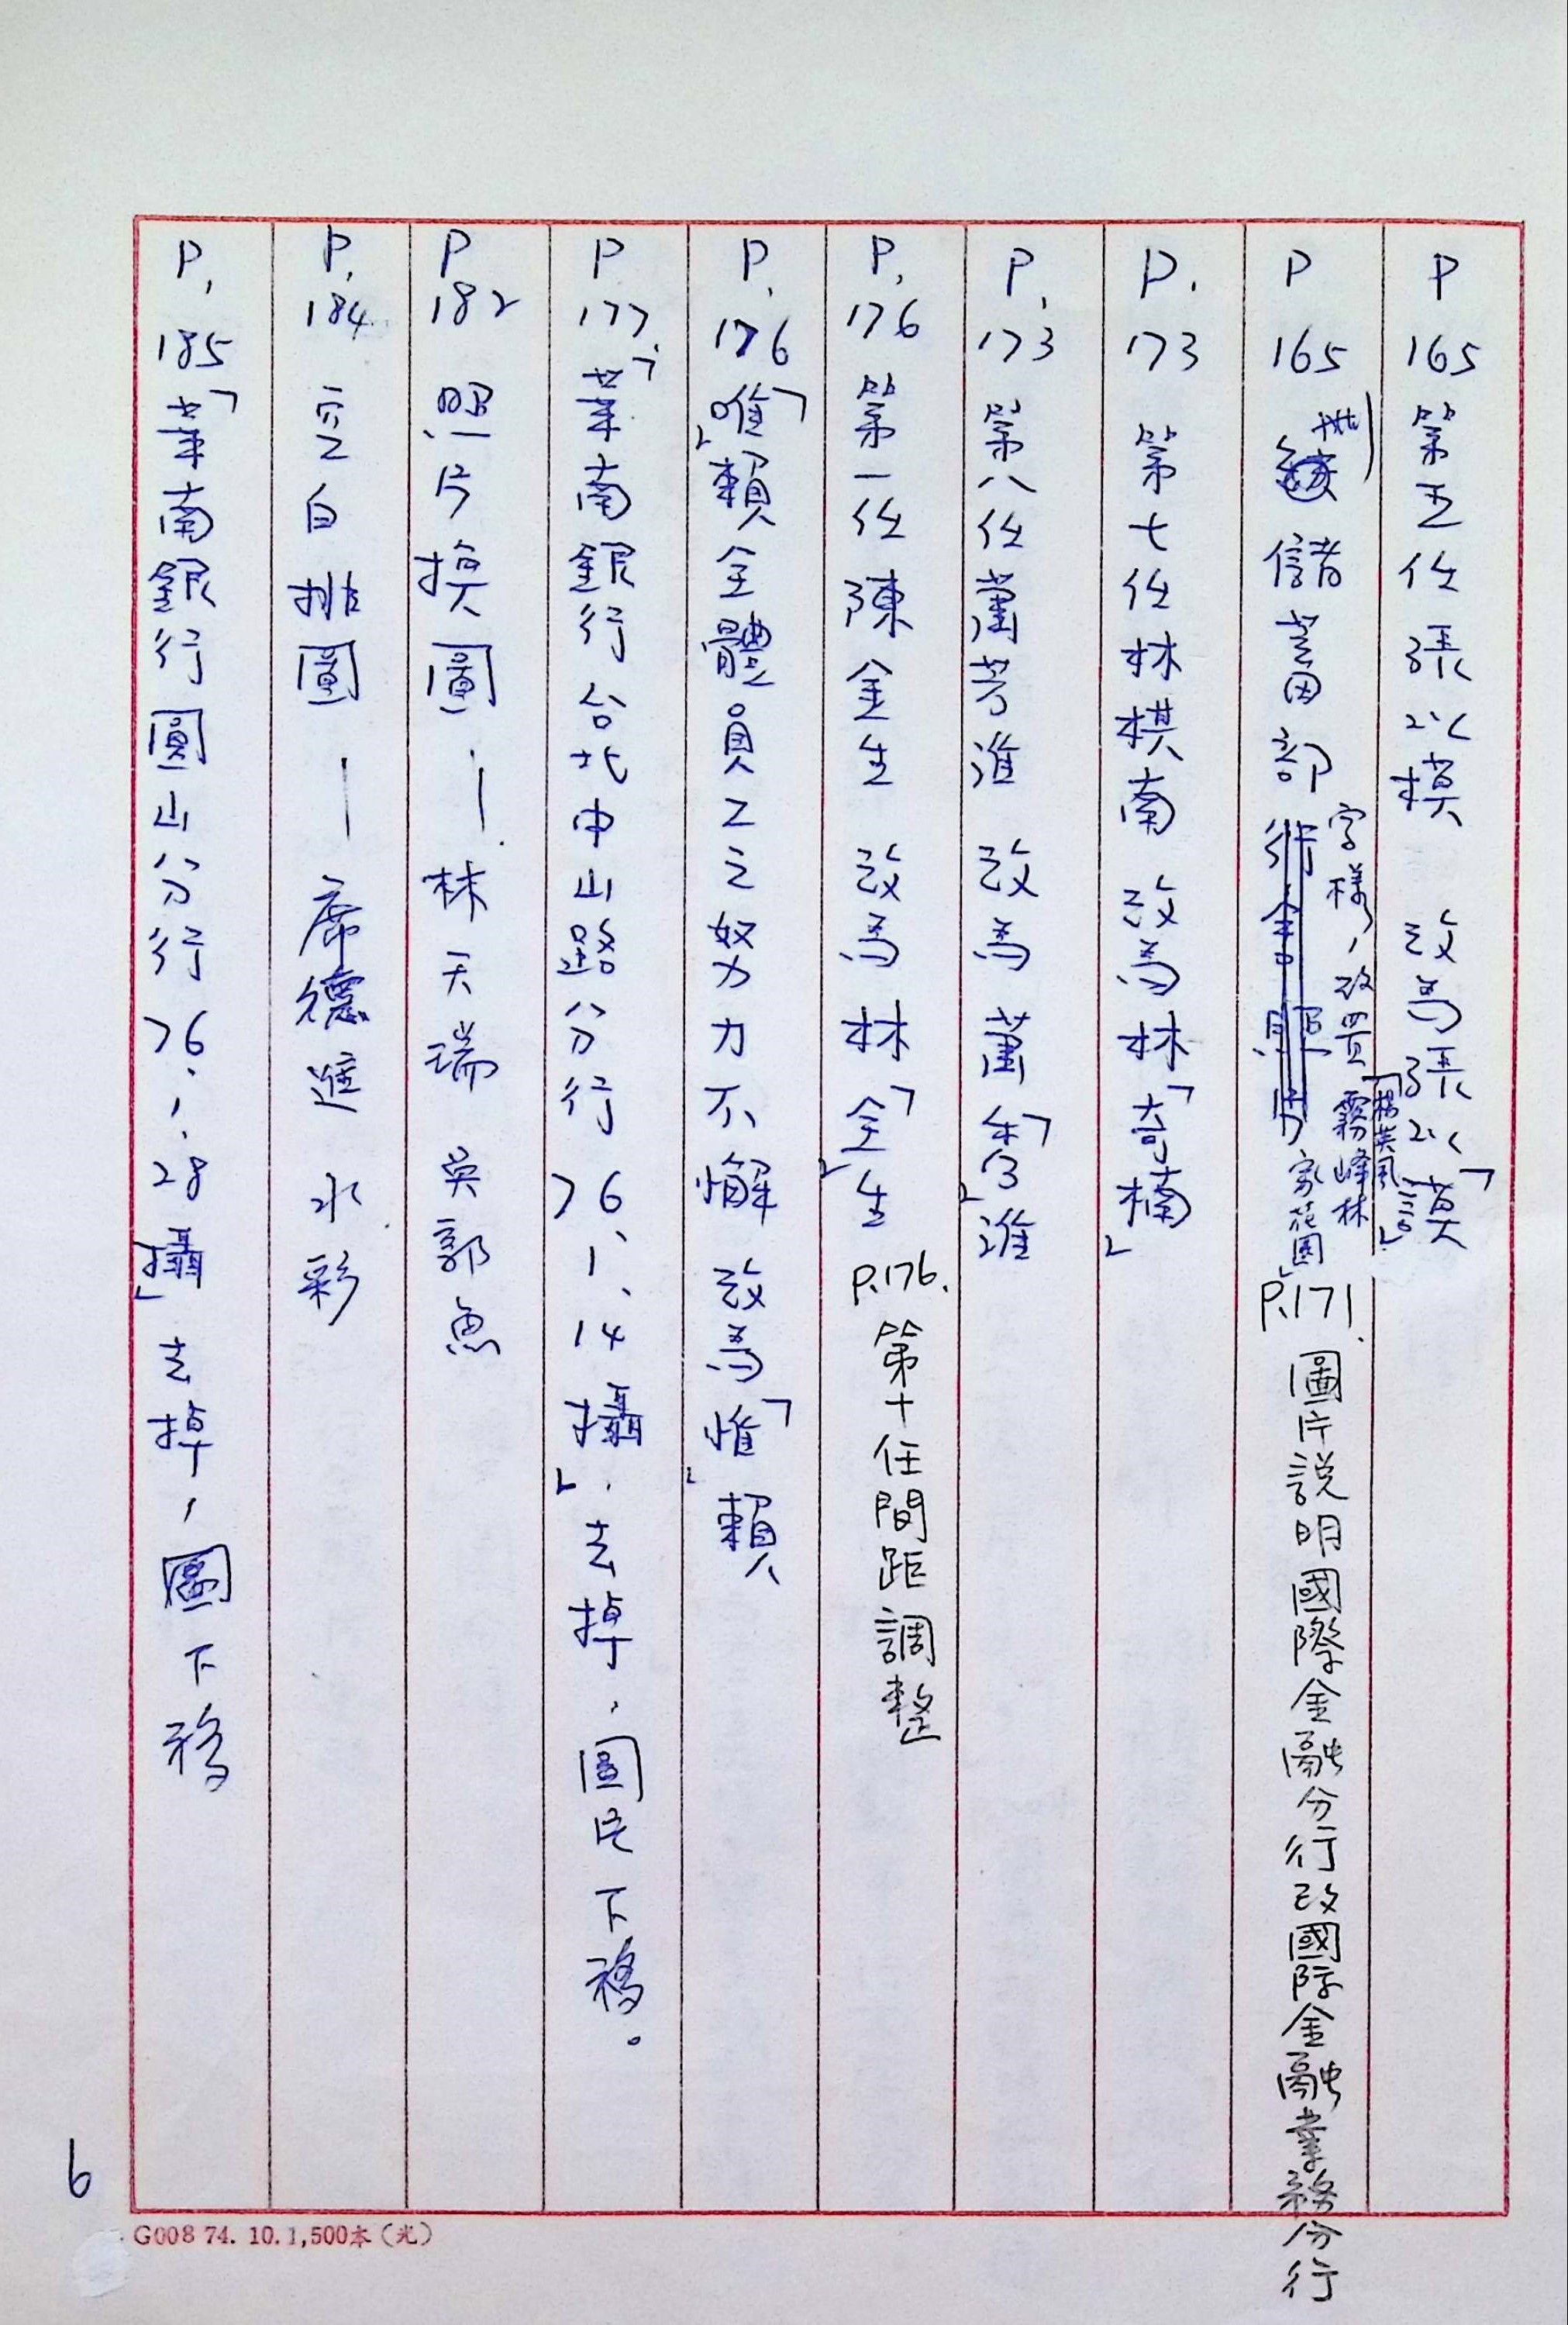 P 165 第五任 張以模 改為張以「謨
P 165 儲蓄部 字樣,改置「楊英風 霧峰林家花園」 P.171. 圖片說明國際金融分行改國際金融業務分行
P. 173 第七任林棋南 改為林「奇楠」
P. 173 第八任蕭芳淮 改為蕭「 」淮
P. 176 第一任陳金生 改為林「全」生 P.176. 第十任間距調整
P. 176 「唯」賴全體員工之努力不懈 改為「惟」賴
P 177.「華南銀行台北中山路分行 76、1、14 攝」,去掉,圖片下移。
P 182 照片換圖—林天瑞 吳郭魚
P. 184. 空白排圖—席德進 水彩
P. 185「華南銀行圓山分行 76、1.28攝」去掉,圖下移
6
G008 74. 10. 1,500本(光)